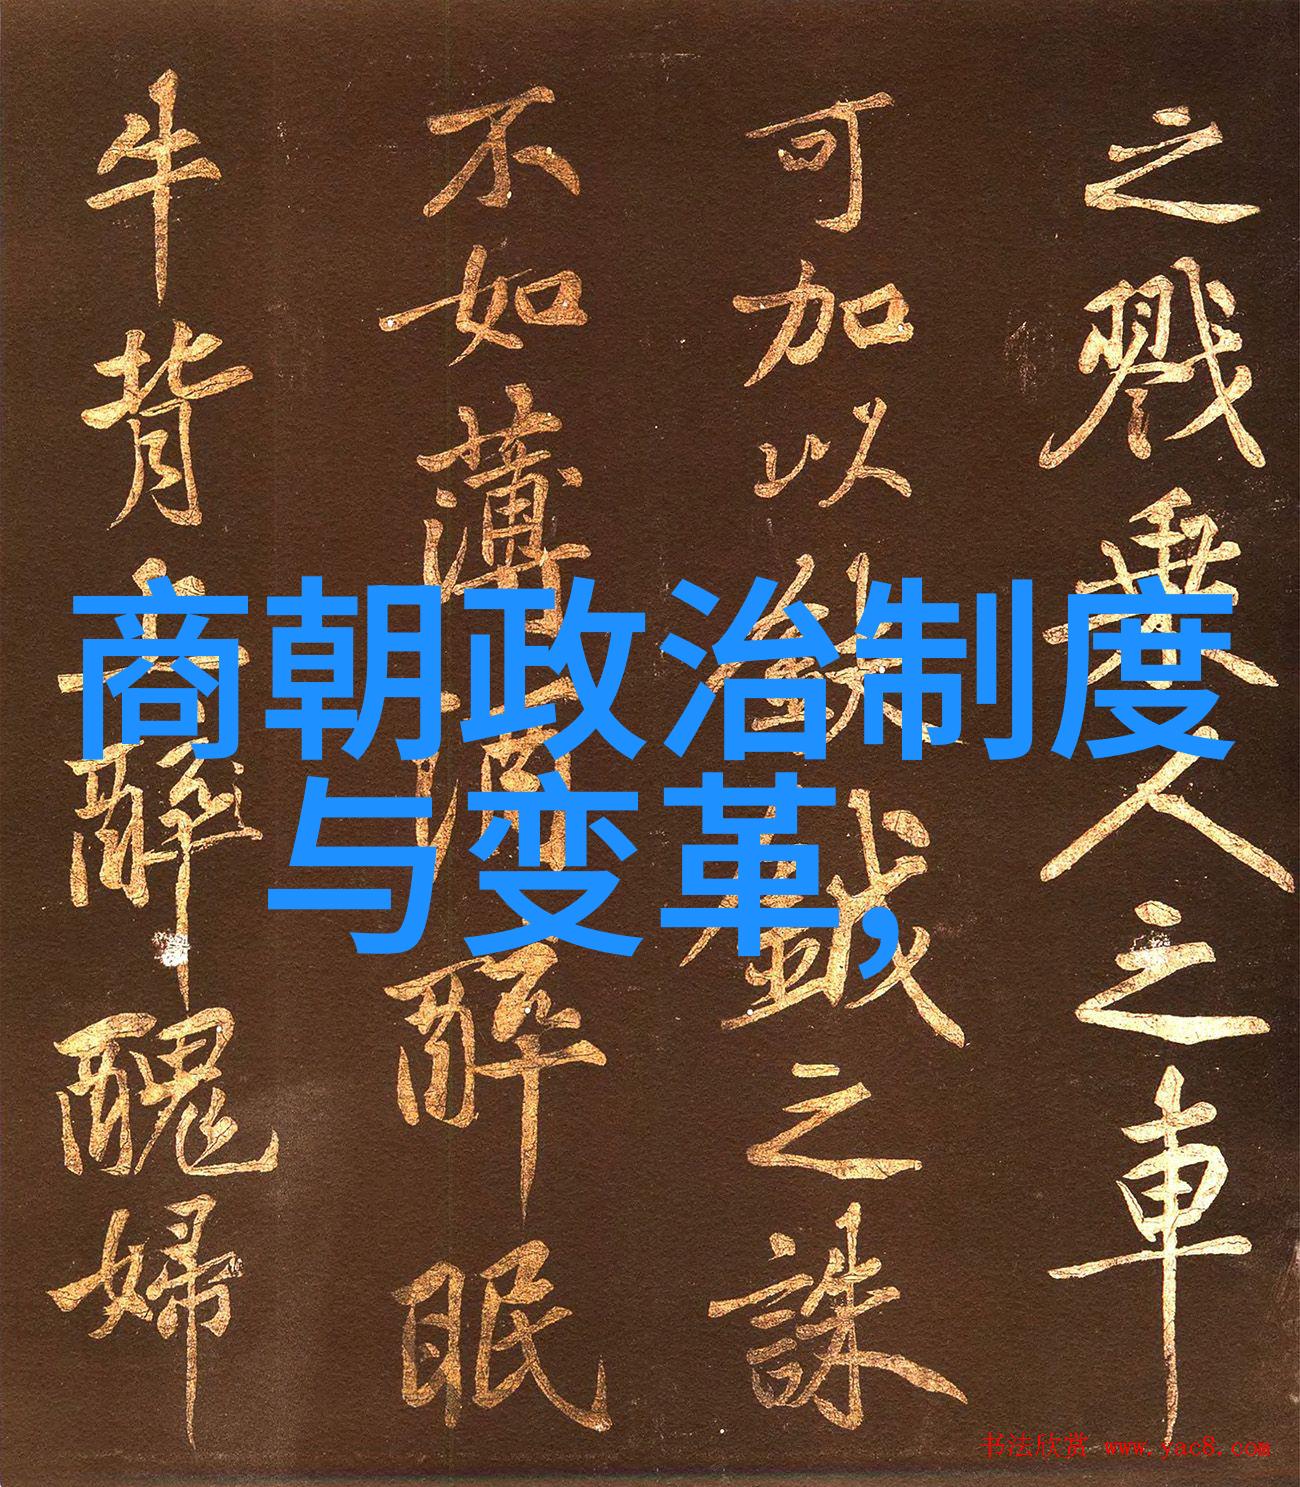 之戮乘人之車
可加以鈇鉞之誅
不如薄酒醉眠
牛背上醉醜婦
商朝政治制度
与变革,
书法欣赏 www.yac8.com